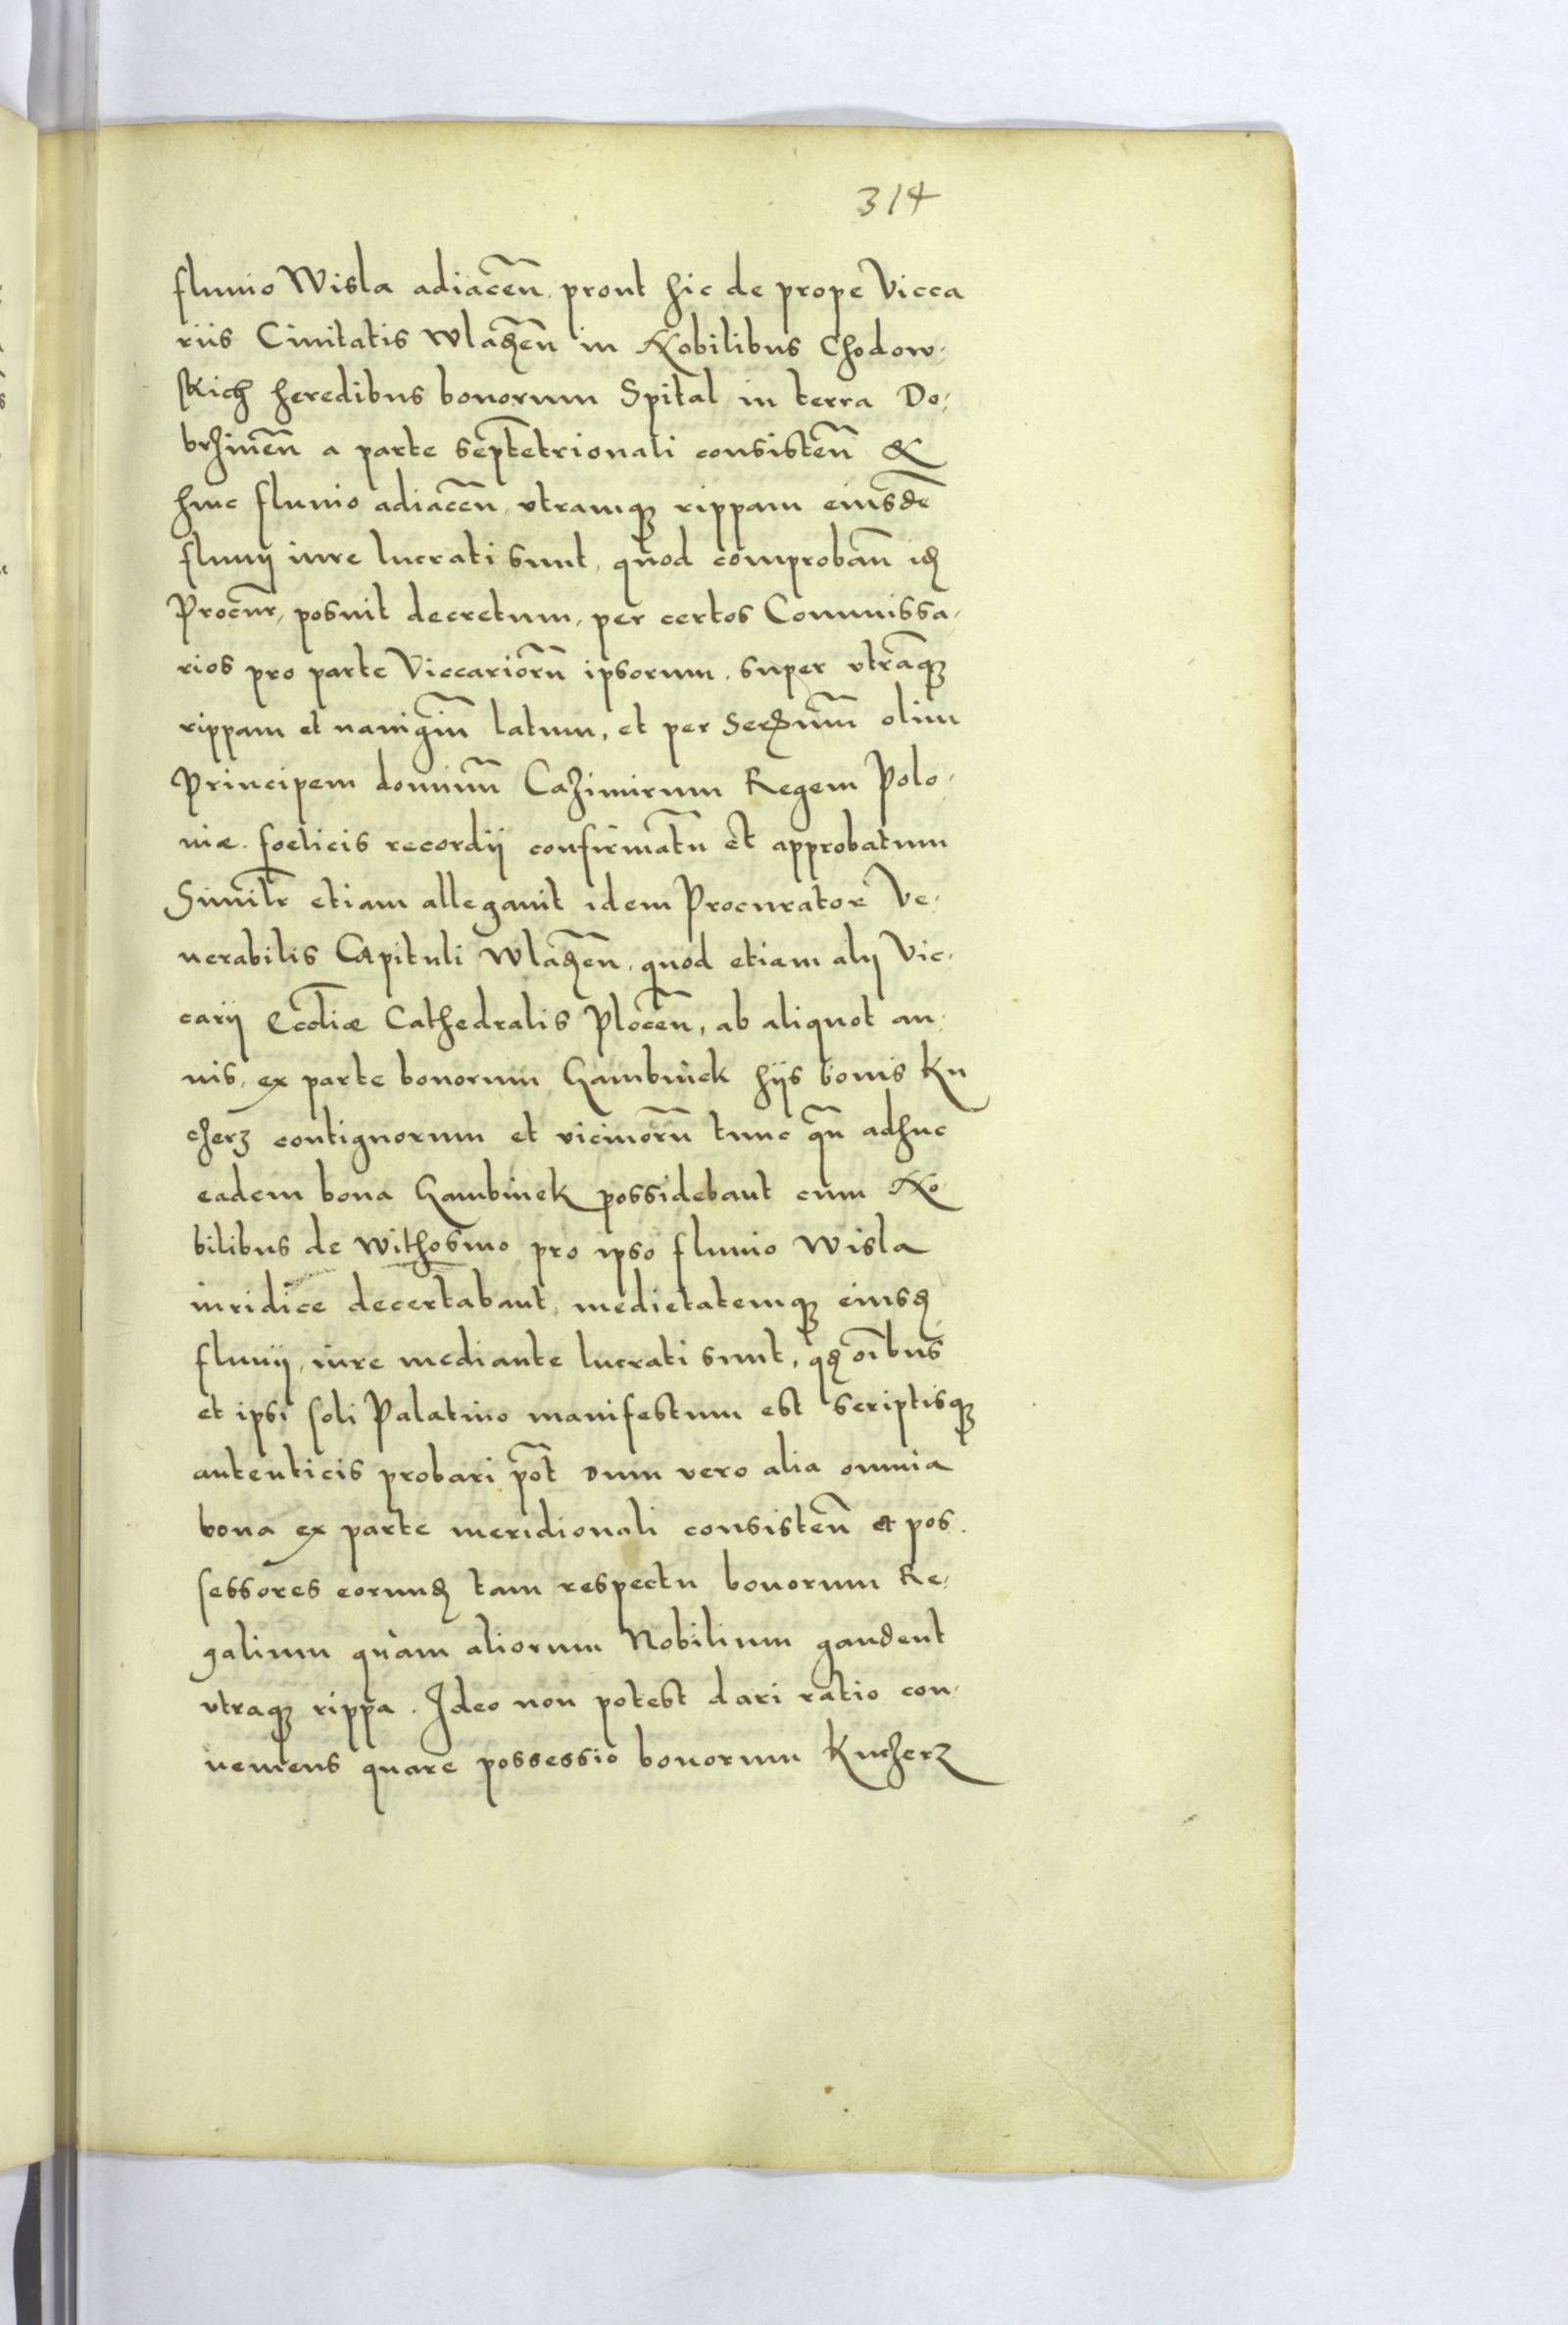 314
fluuio Wisla adiaceñ. prout hic de prope Vicca
riis Ciuitatis Wladẽn in Nobilibus Chodow-
skich heredibus bonorum Spital in terra Do-
brzineñ a parte septẽtrionali consisteñ &
huic fluuio adiaceñ, vtramq3 rippam eiusdẽ
fluuij iure lucrati sunt, quod comprobañ idẽ
Procur̃, posuit decretum, per certos Commissa-
rios pro parte Viccariorũ ipsorum, super vtrãq3
rippam et nauigiũ latum, et per Ser̃mum olim
Principem dominũ Cazimirum Regem Polo-
niæ. foelicis recordij confirmatũ et approbatum
Similr̃ etiam allegauit idem Procurator Ve-
nerabilis Capituli Wladẽn, quod etiam alij Vic-
carij Eccl̃iæ Cathedralis Ploceñ, ab aliquot an-
nis, ex parte bonorum Gambinek hijs bonis Ku
cherz contiguorum et vicinorũ tunc qũ adhuc
eadem bona Gambinek possidebant cum No-
bilibus de Withosino pro ipso fluuio Wisla
iuridice decertabant, medietatemq3 eiusdẽ
fluuij, iure mediante lucrati sunt, qd̃ oĩbus
et ipsi soli Palatino manifestum est scriptisq3
autenticis probari põt Dum vero alia omnia
bona ex parte meridionali consisteñ et pos-
sessores eorundẽ tam respectu bonorum Re-
galium quàm aliorum Nobilium gaudent
vtraq3 rippa. Ideo non potest dari ratio con-
ueniens quare possessio bonorum Kucherz